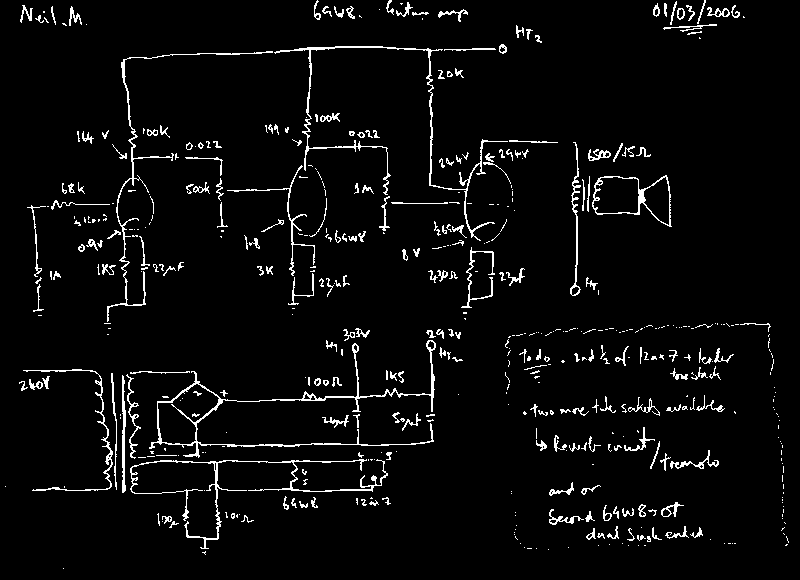 Neil.M.
6GW8. Guitar amp
01/03/2006.
HT2
20K
164 V
100K
0.022
199 V
100K
0.022
244V
294V
6500/15Ω
68K
500K
1M
½ 6GW8
0.9V
1.8
8V
1M
1K5
22µF
3K
22µF
430Ω
22µF
HT1
303V
HT1
297V
HT2
240V
100Ω
1K5
50µF
4
5
9
6GW8
12ax7
100Ω
100Ω
Todo . 2nd ½ of 12ax7 + fender
tonestack
. two more tube sockets available.
↳ Reverb circuit/
tremolo
and or
Second 6GW8 + OT
dual single ended.